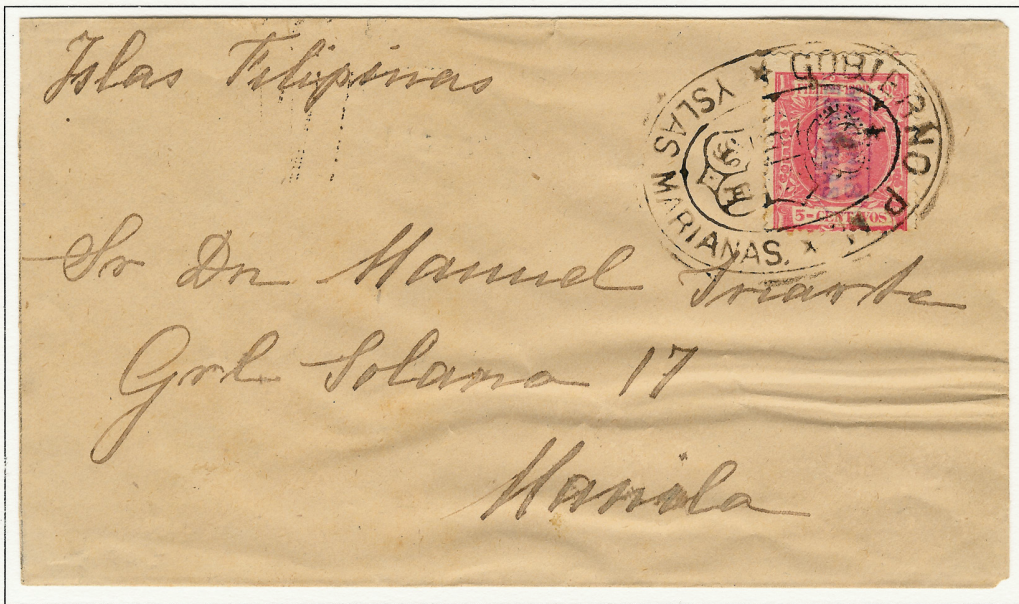 Islas Filipinas
GOBIERNO P. M.
YSLAS MARIANAS.
5-CENTAVOS
Sr Dn Manuel Iriarte
Grl Solano 17
Manila